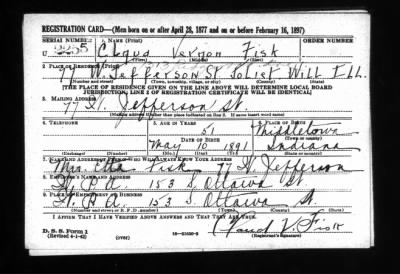 REGISTRATION CARD—(Men born on or after April 28, 1877 and on or before February 16, 1897)
SERIAL NUMBER 1. NAME (Print) ORDER NUMBER
U Cloud Vernon Fisk
(First) (Middle) (Last)
2. PLACE OF RESIDENCE (Print)
77 W. Jefferson St Joliet Will Ill.
(Number and street) (Town, township, village, or city) (County) (State)
[THE PLACE OF RESIDENCE GIVEN ON THE LINE ABOVE WILL DETERMINE LOCAL BOARD
JURISDICTION; LINE 2 OF REGISTRATION CERTIFICATE WILL BE IDENTICAL]
3. MAILING ADDRESS
77 W. Jefferson St.
[Mailing address if other than place indicated on line 2. If same insert word same]
4. TELEPHONE 5. AGE IN YEARS 6. PLACE OF BIRTH
51 Middletown
DATE OF BIRTH (Town or county)
May 10 1891 Indiana
(Exchange) (Number) (Mo.) (Day) (Yr.) (State or country)
7. NAME AND ADDRESS OF PERSON WHO WILL ALWAYS KNOW YOUR ADDRESS
Mrs. Etta Fisk 77 W. Jefferson
8. EMPLOYER'S NAME AND ADDRESS
W. P. A. 153 S. Ottawa St
9. PLACE OF EMPLOYMENT OR BUSINESS
W. P. A. 153 S. Ottawa St.
(Number and street or R. F. D. number) (Town) (County) (State)
I AFFIRM THAT I HAVE VERIFIED ABOVE ANSWERS AND THAT THEY ARE TRUE.
D. S. S. Form 1
(Revised 4-1-42) (over) V. Fisk
(Registrant's signature)